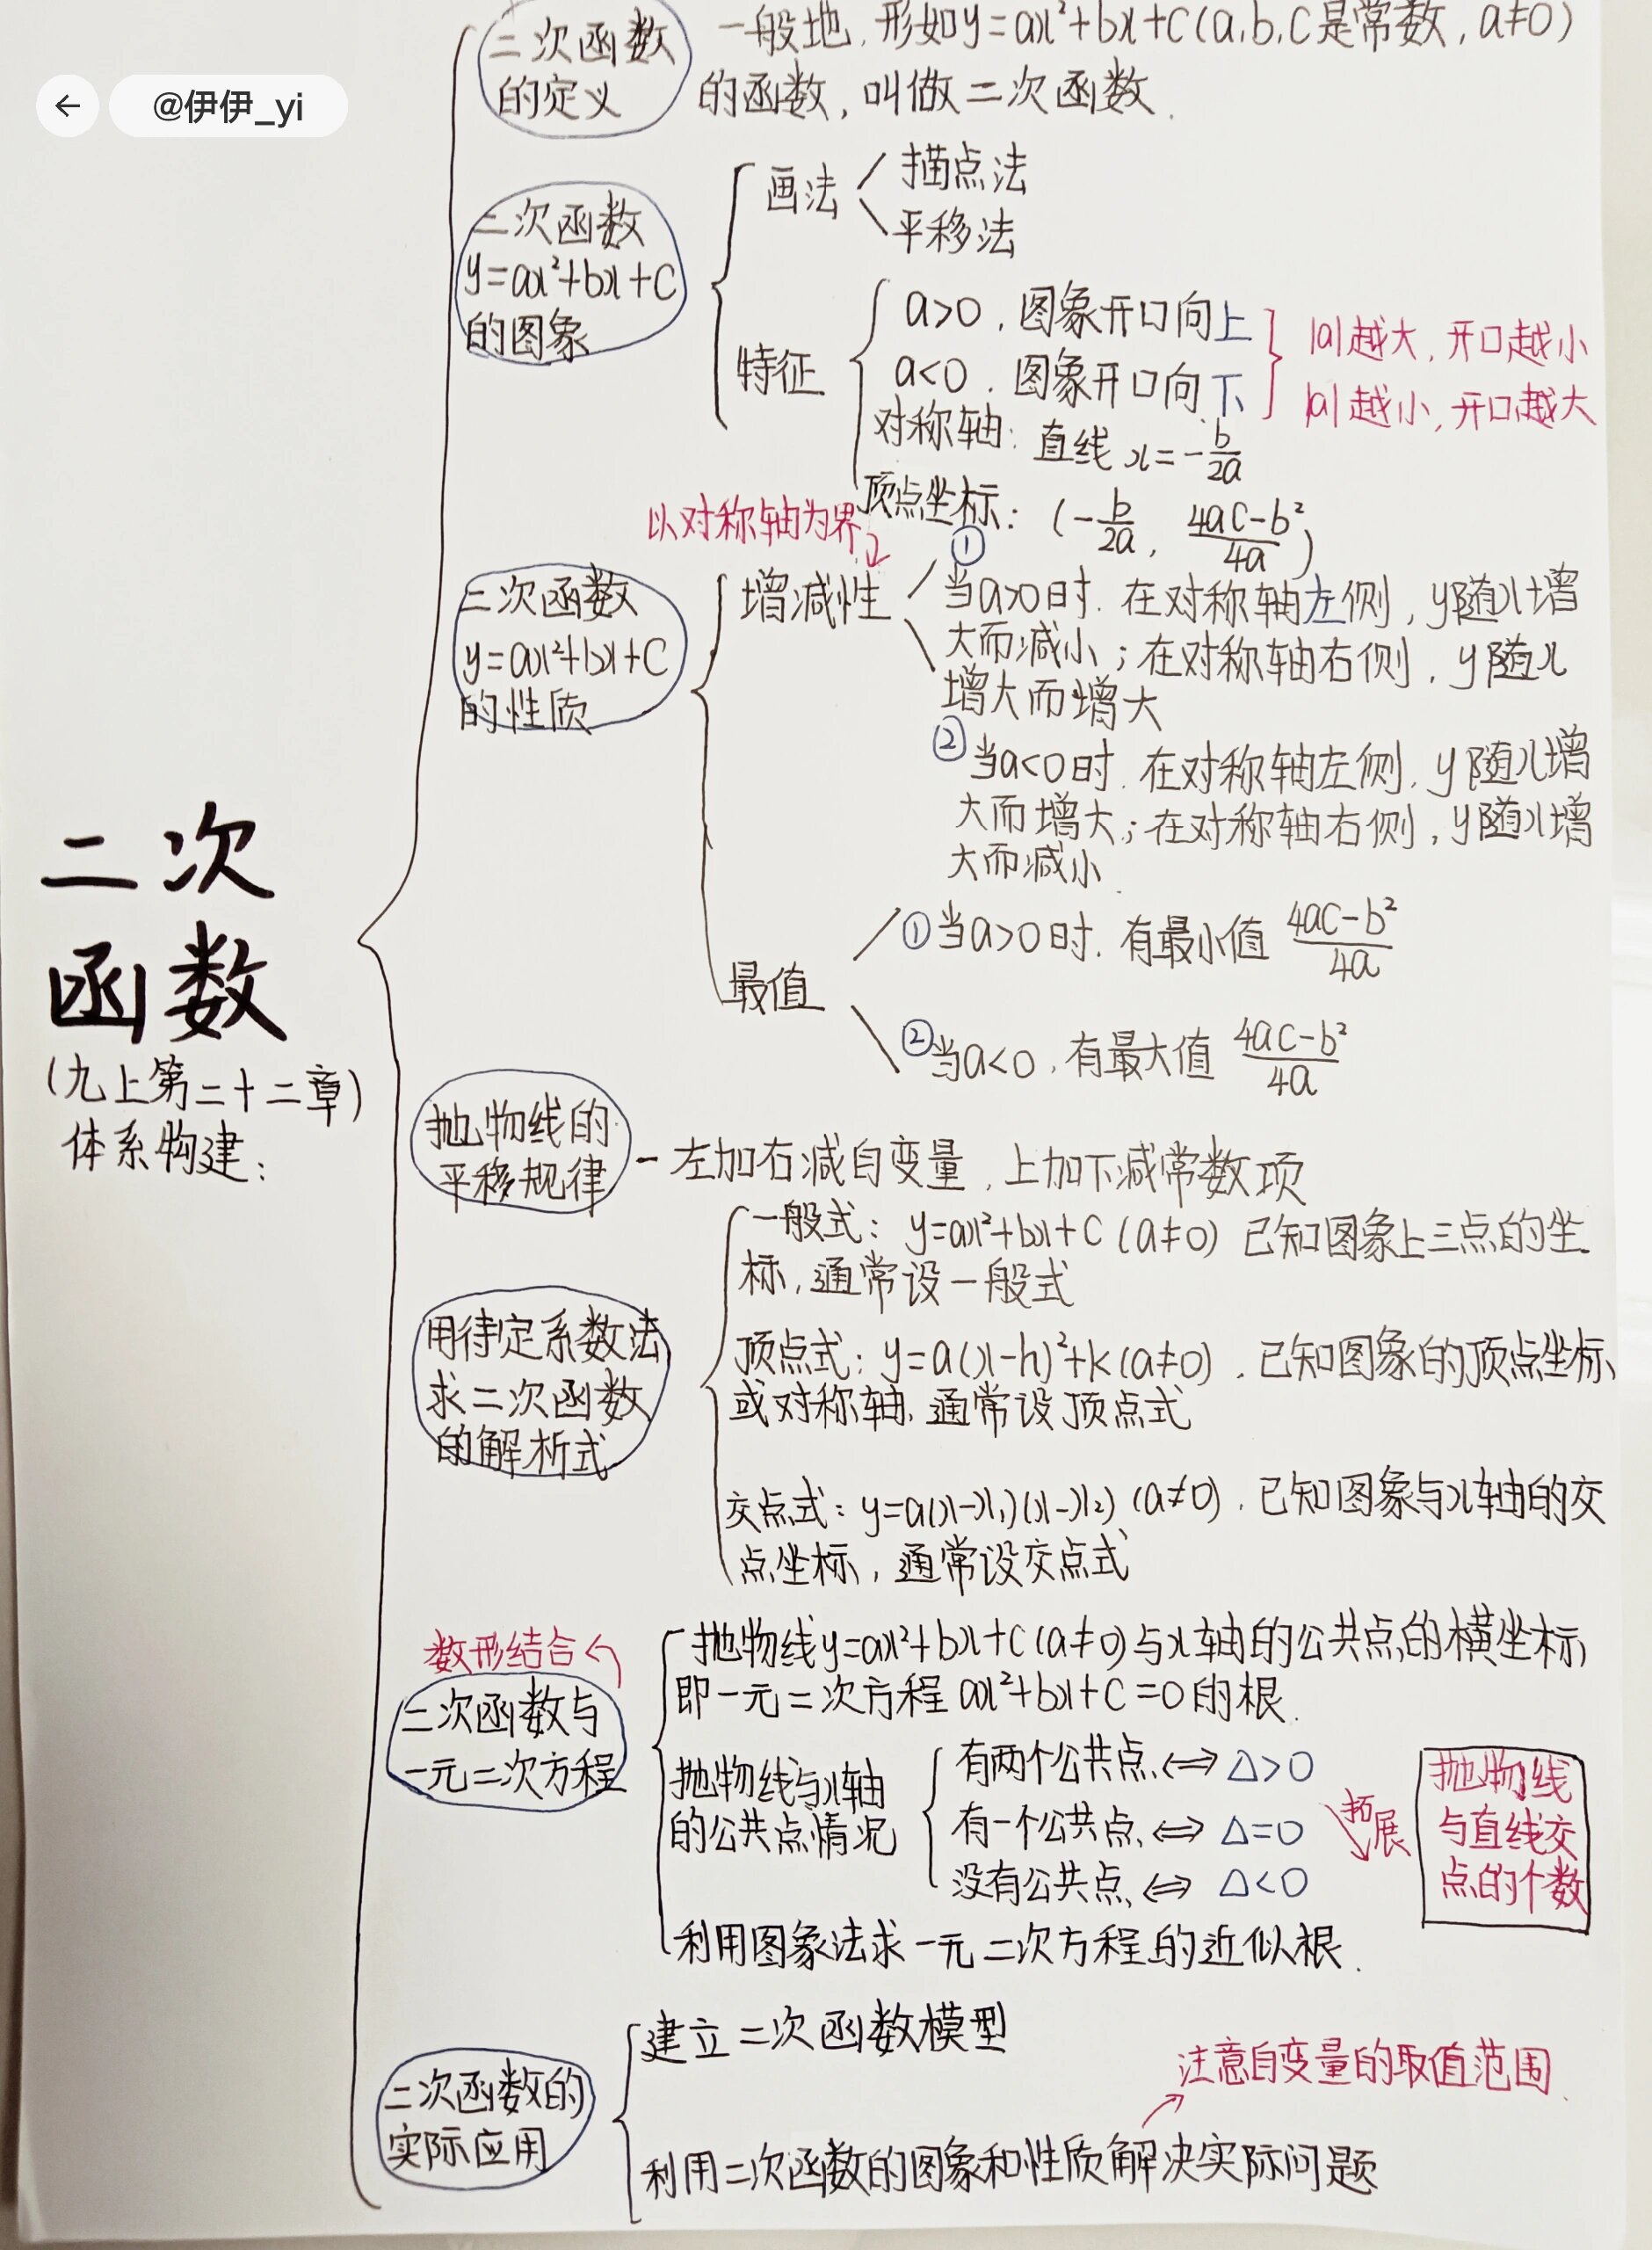 @伊伊_yi
二次函数
的定义
一般地，形如y=ax²+bx+c(a,b,c是常数，a≠0)
的函数，叫做二次函数.
二次函数
y=ax²+bx+c
的图象
画法
描点法
平移法
特征
a>0，图象开口向上
a<0，图象开口向下
|a|越大，开口越小
|a|越小，开口越大
对称轴：直线x=-b/2a
顶点坐标：(-b/2a，4ac-b²/4a)
以对称轴为界
二次函数
y=ax²+bx+c
的性质
增减性
①
当a>0时．在对称轴左侧，y随x增
大而减小；在对称轴右侧，y随x
增大而增大
②
当a<0时．在对称轴左侧，y随x增
大而增大；在对称轴右侧，y随x增
大而减小.
最值
①当a>0时．有最小值 4ac-b²/4a
②当a<0，有最大值 4ac-b²/4a
二次
函数
(九上第二十二章)
体系构建：
抛物线的
平移规律
左加右减自变量，上加下减常数项
用待定系数法
求二次函数
的解析式
一般式：y=ax²+bx+c(a≠0) 已知图象上三点的坐
标，通常设一般式
顶点式：y=a(x-h)²+k(a≠0)．已知图象的顶点坐标
或对称轴，通常设顶点式
交点式：y=a(x-x₁)(x-x₂)(a≠0)．已知图象与x轴的交
点坐标，通常设交点式
数形结合
二次函数与
一元二次方程
抛物线y=ax²+bx+c(a≠0)与x轴的公共点的横坐标，
即一元二次方程ax²+bx+c=0的根.
抛物线与x轴
的公共点情况
有两个公共点⇔△>0
有一个公共点⇔△=0
没有公共点⇔△<0
拓展
抛物线
与直线交
点的个数
利用图象法求一元二次方程的近似根.
二次函数的
实际应用
建立二次函数模型
注意自变量的取值范围.
利用二次函数的图象和性质解决实际问题